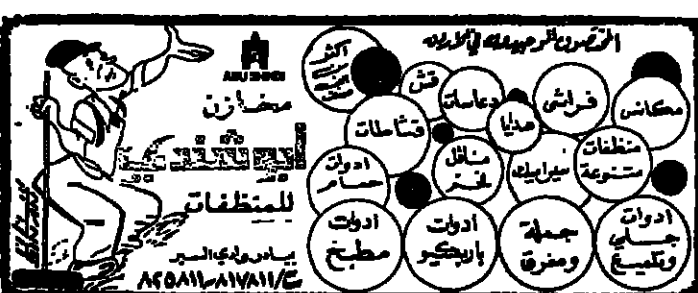 المختصون الوحيدون في الأردن
ABU SHINDI
مخازن
أبو شندي
للمنظفات
بيادر وادي السير
ت/٨١٧٨١١-٨٢٥٨١١
أكثر
قش
دعاسات
فراشي
مكانس
قشاطات
هدايا
منظفات
متنوعة
أدوات
حمام
مناقل
فحم
سيراميك
أدوات
مطبخ
أدوات
باربكيو
جملة
ومفرق
أدوات
جلي
وتلميع